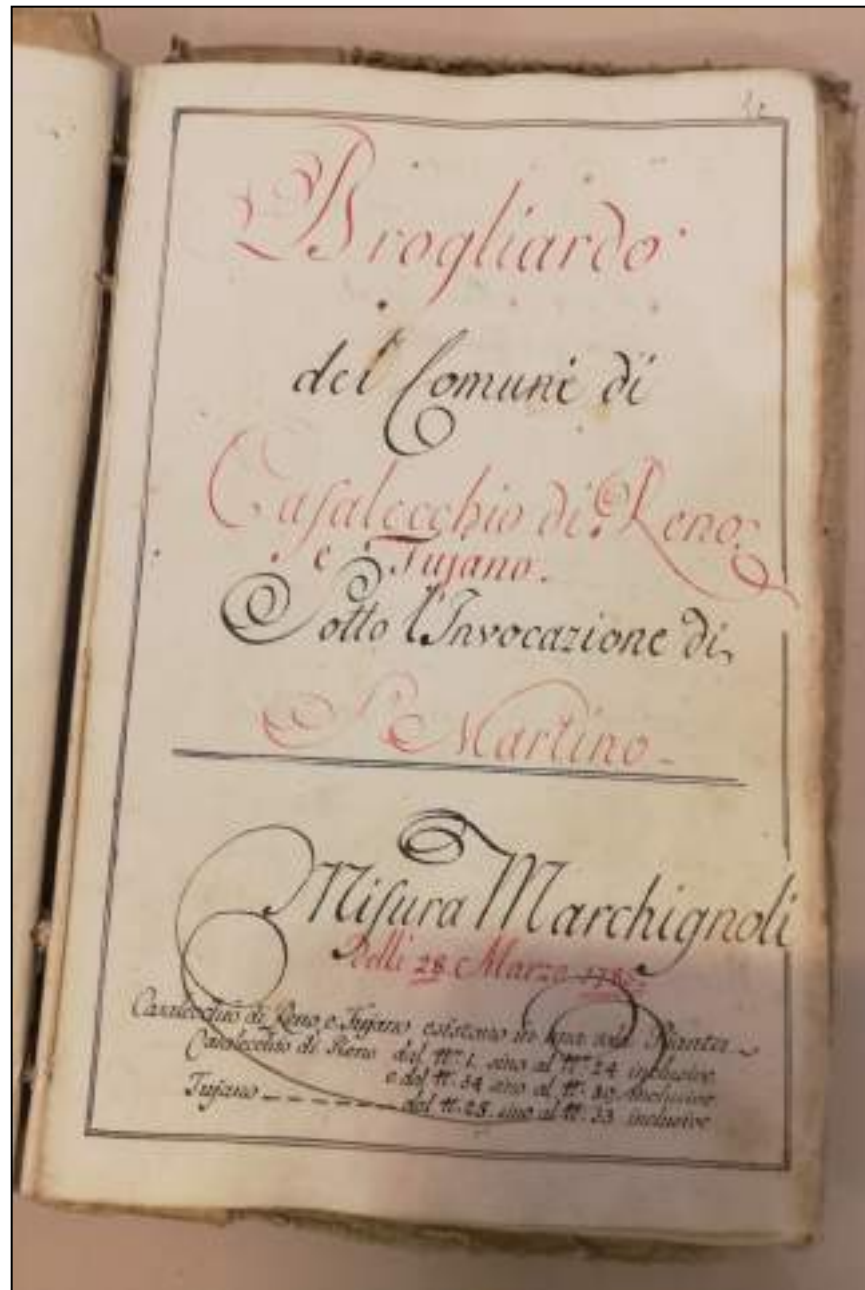 Brogliardo
del Comune di
Casalecchio di Reno,
e Tujano.
Sotto l'Invocazione di
S. Martino
Misura Marchignoli
Delli 28 Marzo
Casalecchio di Reno, e Tujano esistono in una sola Pianta
Casalecchio di Reno dal N.º 1. sino al N.º 24 inclusive
e dal N. 34 sino al N. inclusive
Tujano dal N. 25. sino al N. 33 inclusive